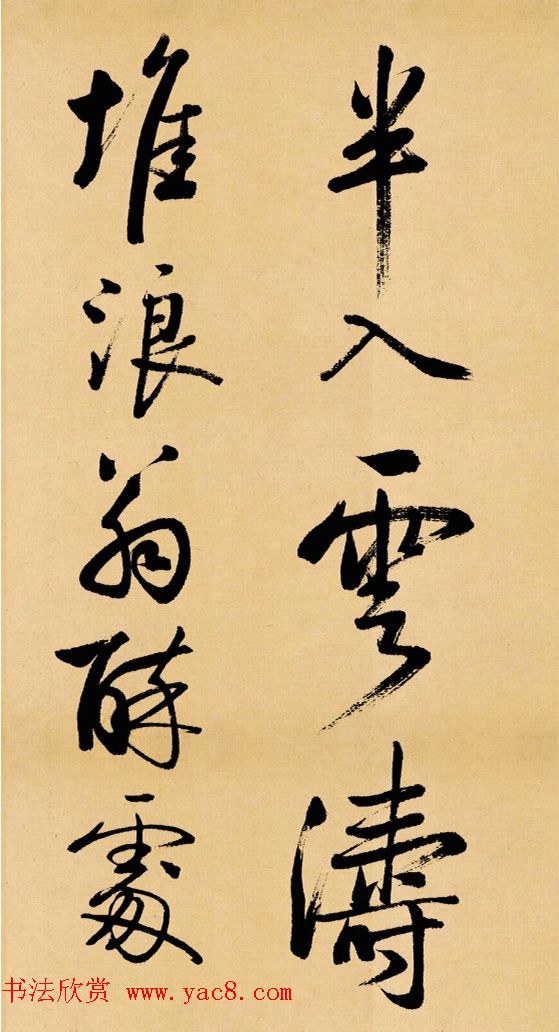 半入雲濤
堆浪翁醉處
书法欣赏 www.yac8.com